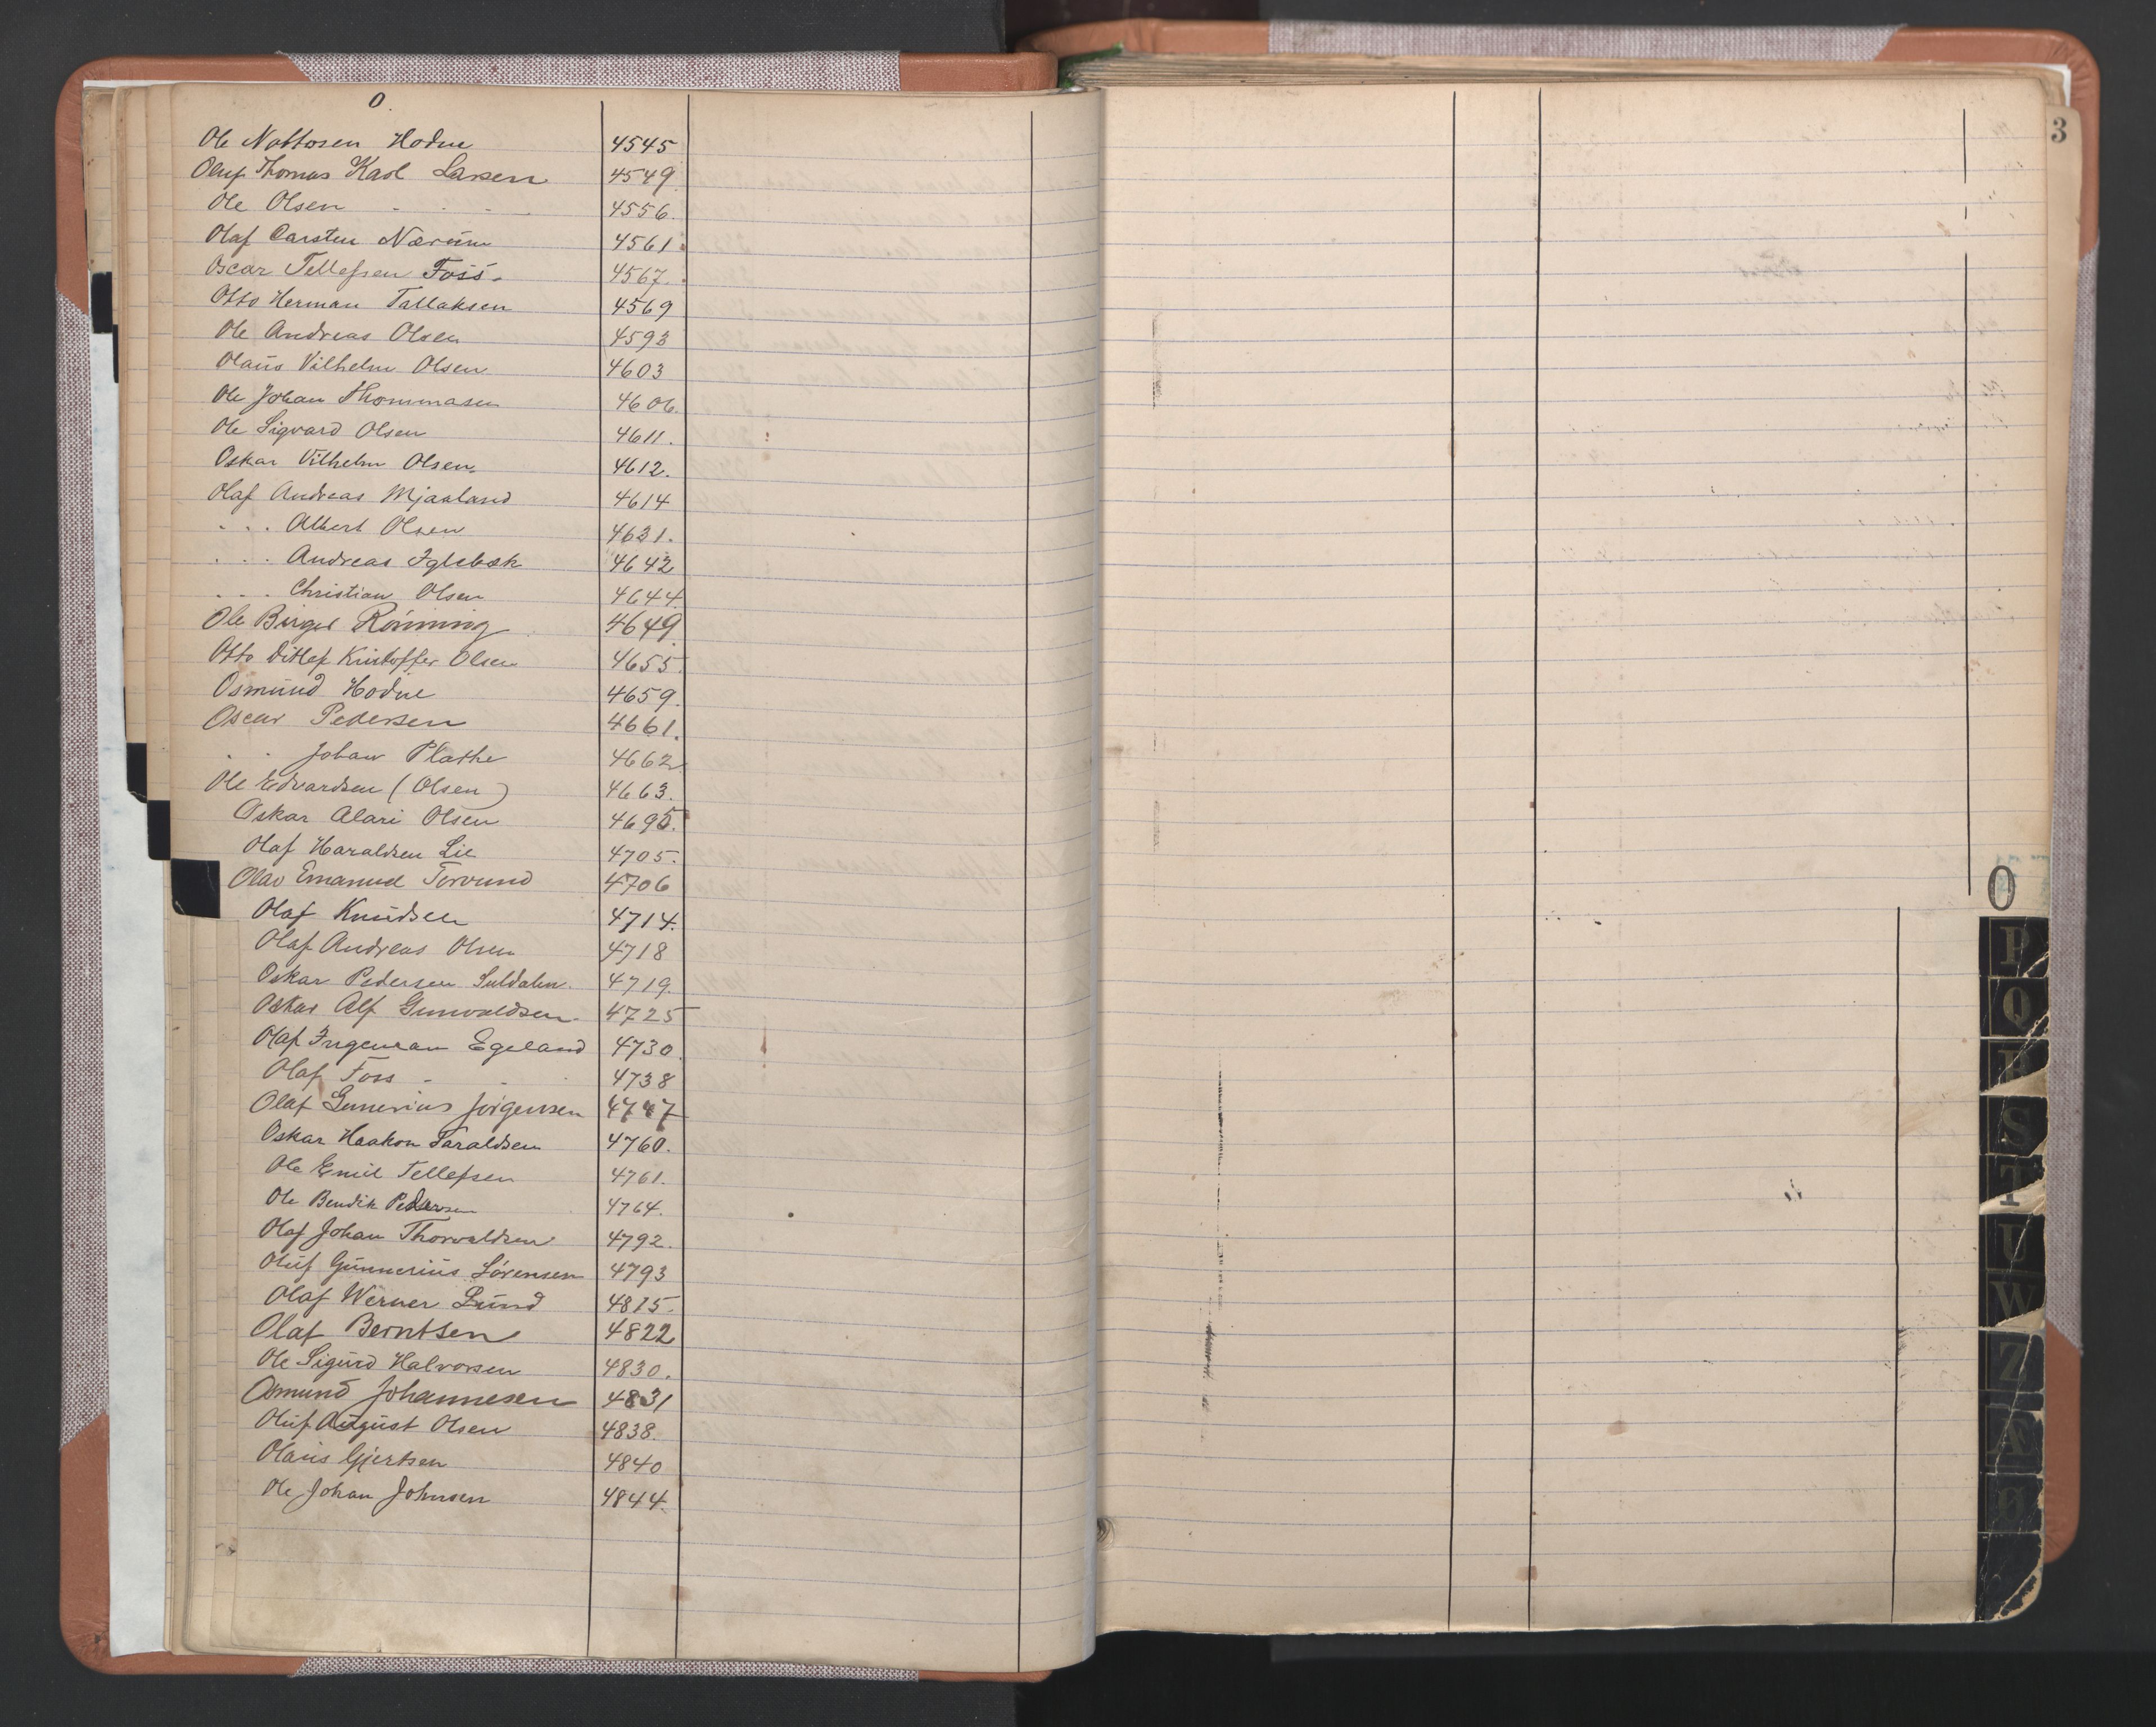 O.
Ole Nattosen Hodne 4545
Oluf Thomas Karl Larsen 4549.
Ole Olsen - - - - 4556.
Olaf Carsten Nærüm 4561.
Oscar Tellefsen Foss. 4567.
Otto Herman Tallaksen 4569
Ole Andreas Olsen 4593
Olaüs Vilhelm Olsen 4603
Ole Johan Thommasen 4606.
Ole Sigvard Olsen 4611.
Oskar Vilhelm Olsen. 4612.
Olaf Andreas Mjaaland 4614
- - - Albert Olsen 4631.
- - - Andreas Iglebæk 4642
- - - Christian Olsen 4644.
Ole Birger Rönning 4649
Otto Ditlef Kristoffer Olsen 4655.
Osmünd Hodne 4659.
Oscar Pedersen 4661.
- - Johan Plathe 4662
Ole Edvardsen (Olsen) 4663.
Oskar Alari Olsen 4695.
Olaf Haraldsen Lie 4705.
Olav Emanuel Torvund 4706
Olaf Knüdsen 4714.
Olaf Andreas Olsen 4718
Oskar Pedersen Suldalen. 4719.
Oskar Alf Gunvaldsen. 4725
Olaf Ingeman Egeland 4730
Olaf Foss - - - 4738
Olaf Gunerius Jörgensen 4747
Oskar Haakon Taraldsen 4760.
Ole Emil Tellefsen 4761.
Ole Bendik Pedersen 4764.
Olaf Johan Thorvaldsen 4792.
Olüf Günnerius Sörensen 4793
Olaf Werner Lünd 4815.
Olaf Berntsen 4822
Ole Sigürd Halvorsen 4830.
Osmund Johannesen 4831
Olüf Aügüst Olsen 4838.
Olaüs Gjertsen 4840
Ole Johan Johnsen 4844.
3
O
P
Q
S
T
U
W
Z
Æ
Ø